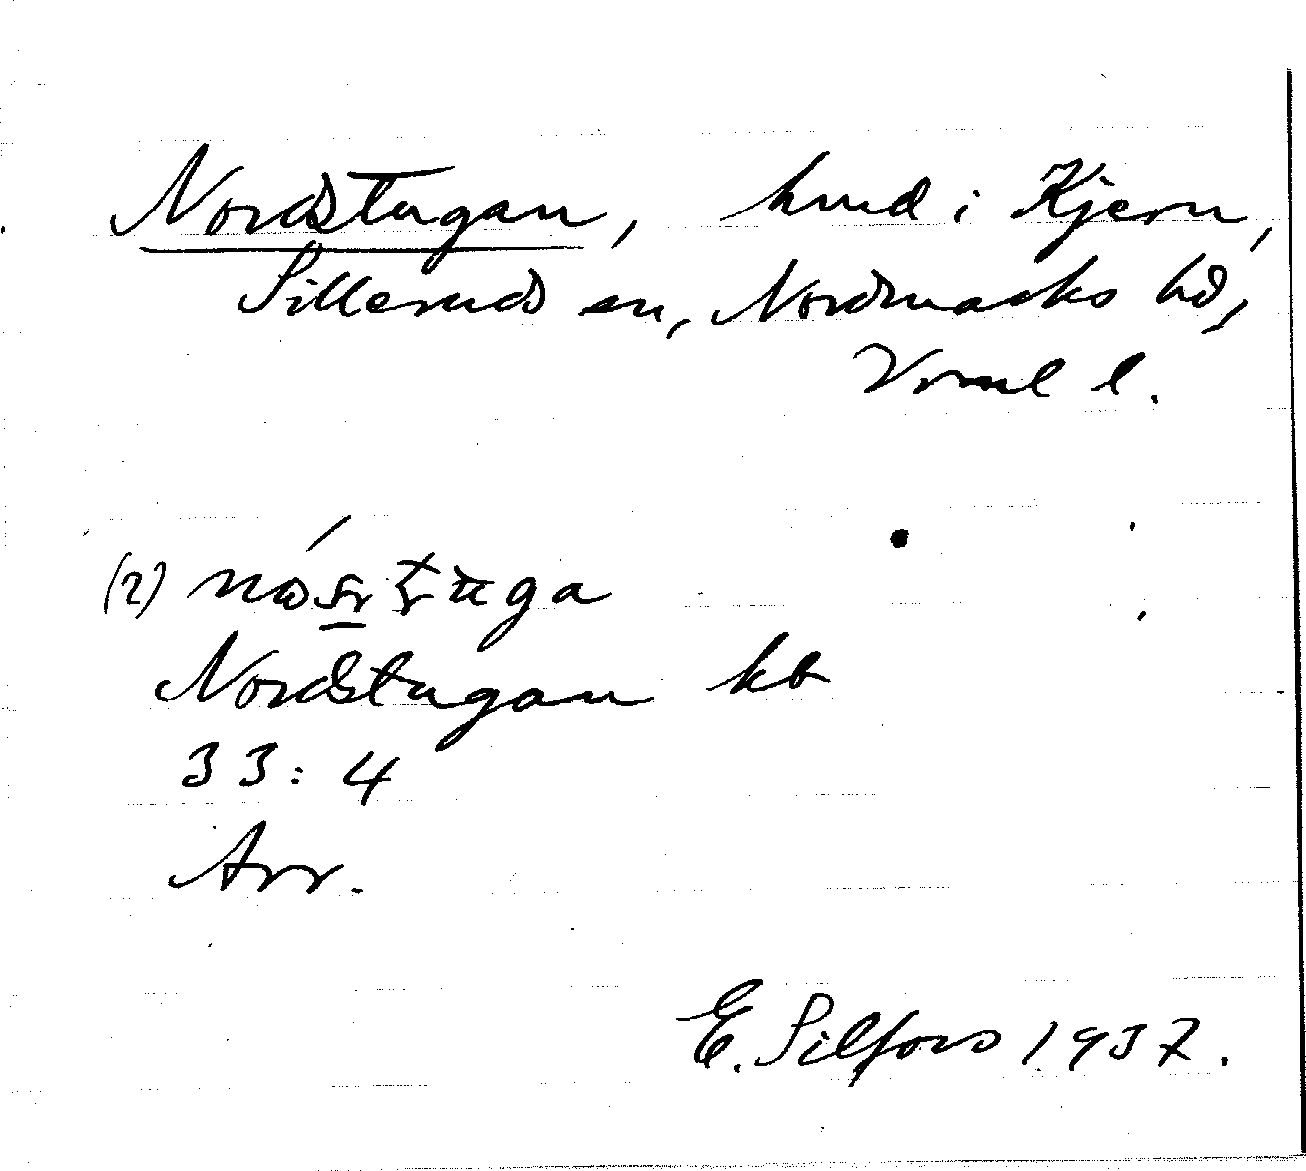 Nordstugan, hmd i Kjern,
Silleruds sn, Nordmarks hd,
Vrml l.
(2)
Nordstugan kb
33:4
Arr.
E. Silfors 1937.